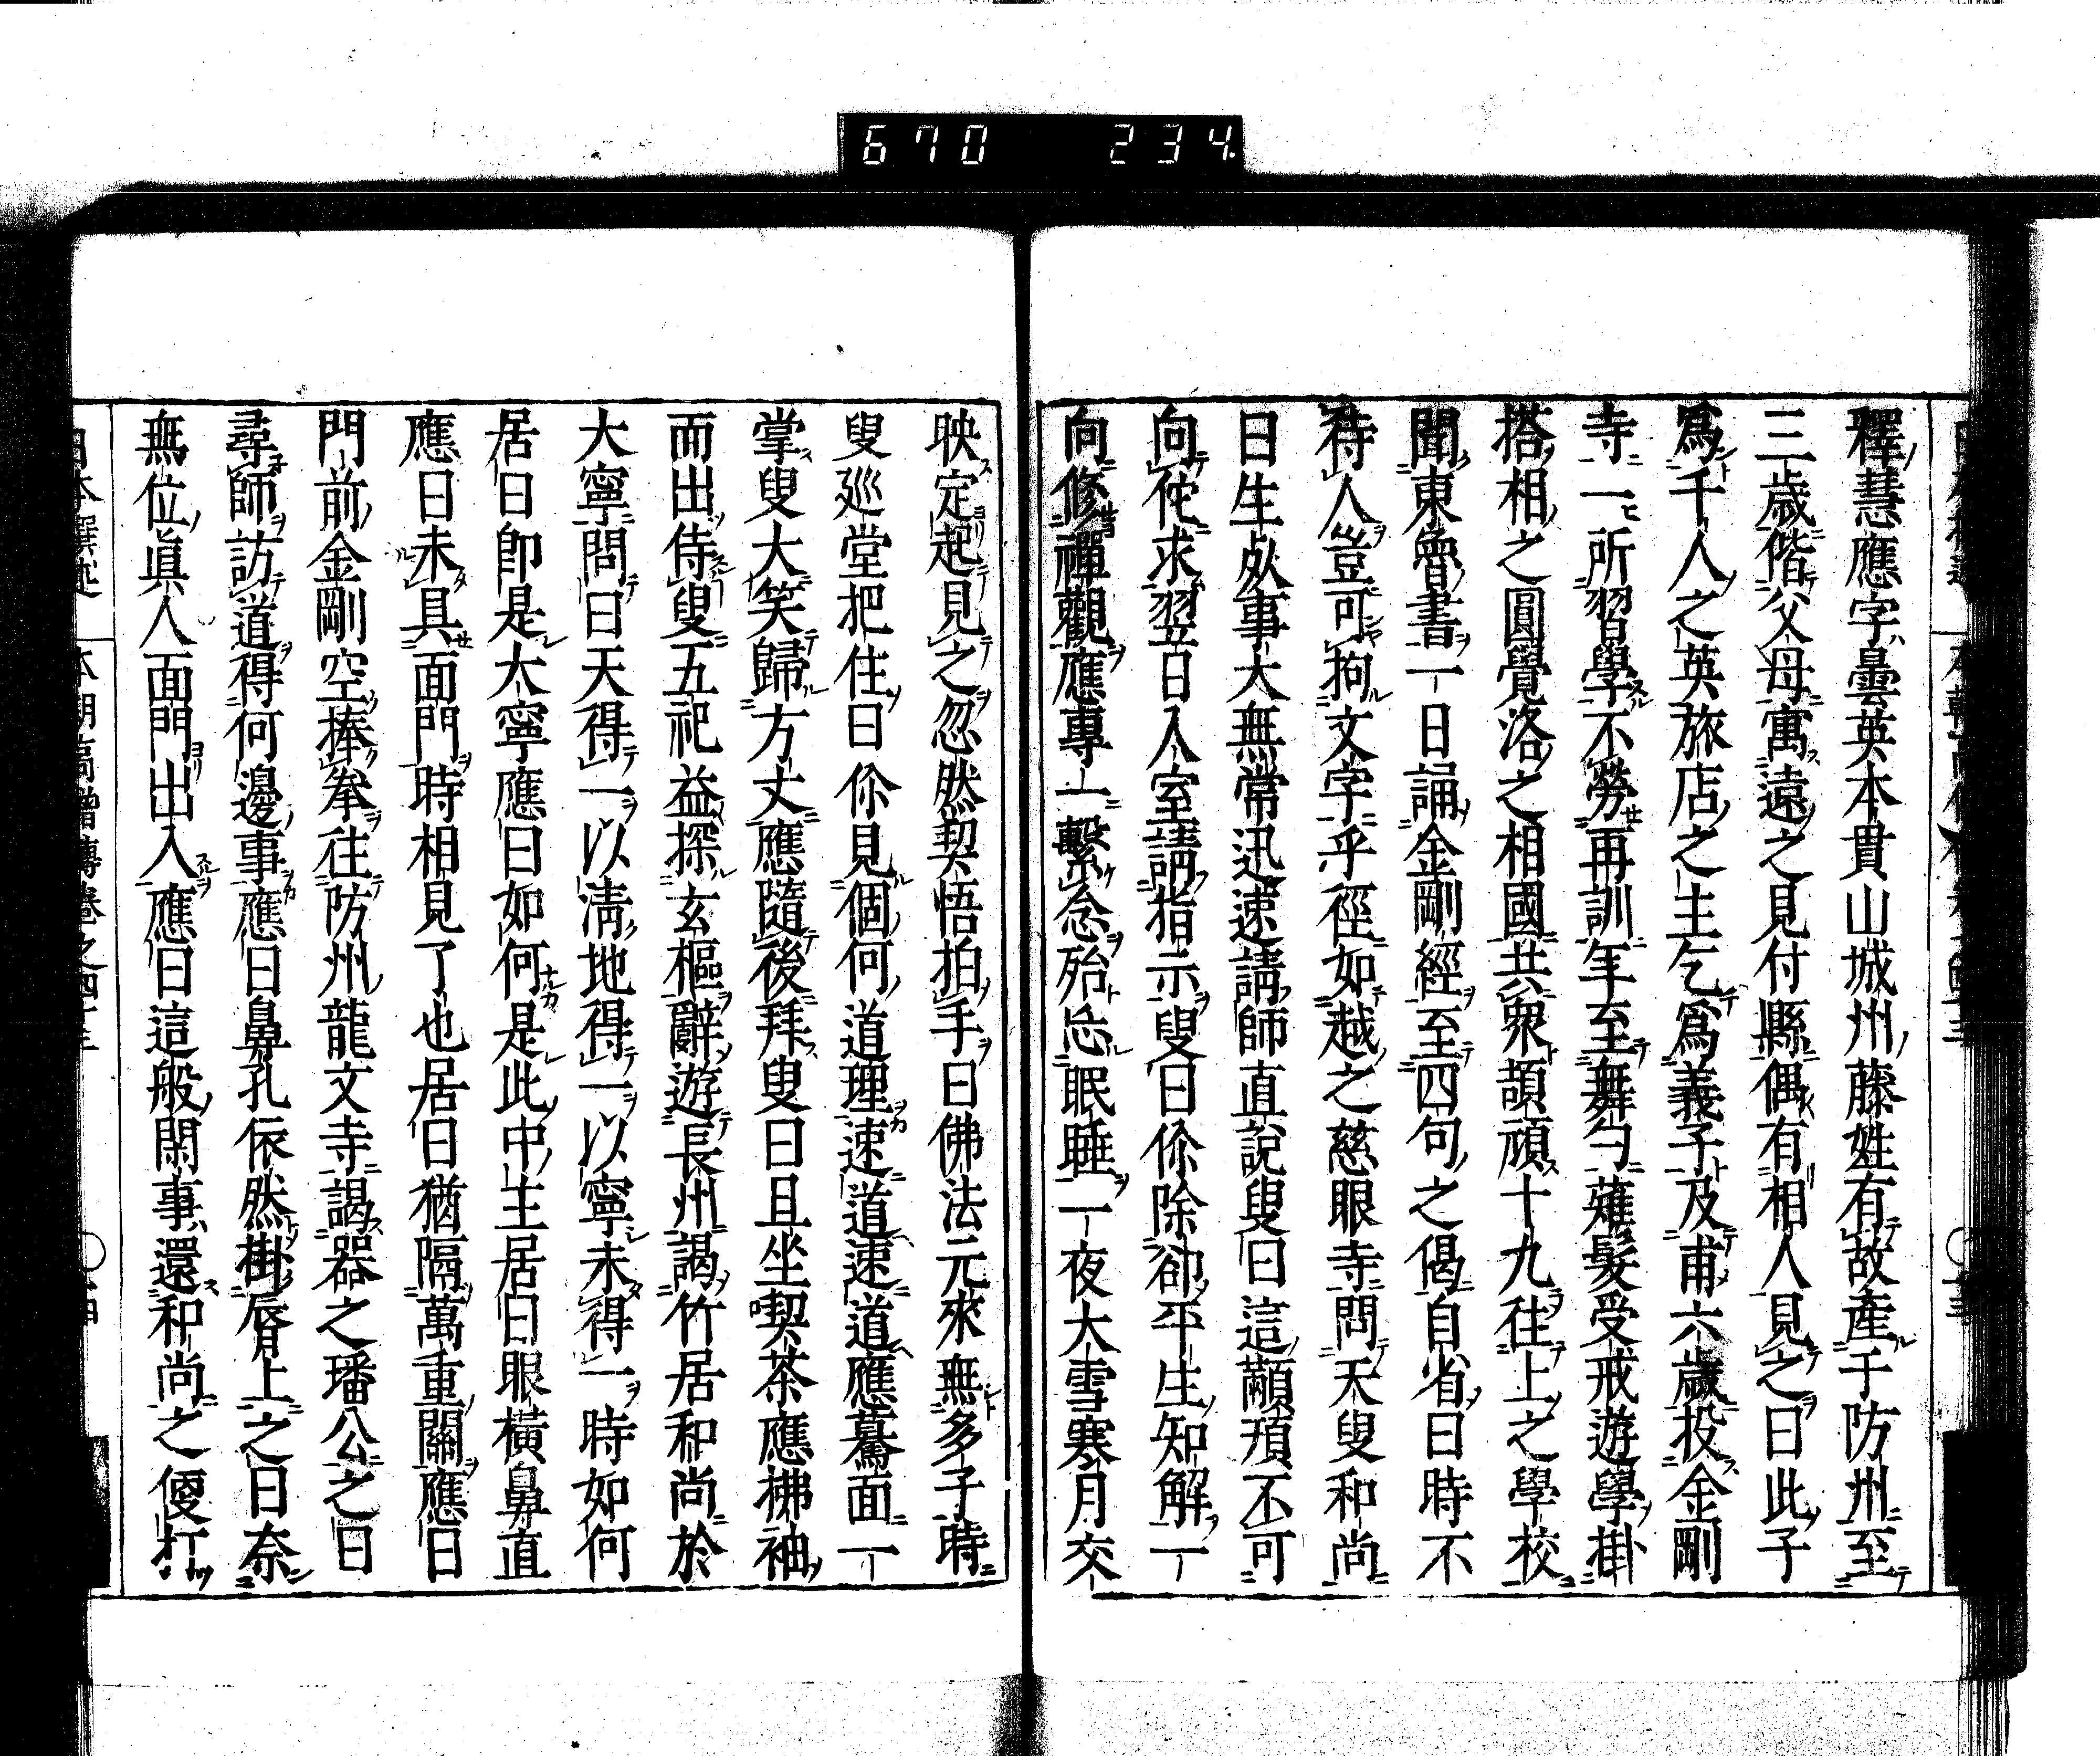 670 234.
釋慧應字曇英本貫山城州藤姓有故產于防州至
三歲偕父母寓遠之見付縣偶有相人見之曰此子
爲千人之英旅店之主乞爲義子及甫六歲投金剛
寺一所習學不勞再訓年至舞勺薙髮受戒遊學掛
搭相之圓覺洛之相國共衆頡頏十九往上之學校
聞東魯書一日誦金剛經至四句之偈自省曰時不
待人豈可拘文字乎徑如越之慈眼寺問天叟和尚
曰生死事大無常迅速請師直說叟曰這顢頇不可
向佗求翌日入室請指示叟曰你除卻平生知解一
向修禪觀應專一繫念殆忘眠睡一夜大雪寒月交
映定起見之忽然契悟拍手曰佛法元來無多子時
叟巡堂把住曰你見個何道理速道速道應驀面一
掌叟大笑歸方丈應隨後拜叟曰且坐喫茶應拂袖
而出侍叟五祀益探玄樞辭遊長州謁竹居和尚於
大寧問曰天得一以淸地得一以寧未得一時如何
居曰卽是大寧應曰如何是此中主居曰眼橫鼻直
應曰未具面門時相見了也居曰猶隔萬重關應曰
門前金剛空捧拳往防州龍文寺謁器之璠公之曰
尋師訪道得何邊事應曰鼻孔依然掛脣上之曰奈
無位眞人面門出入應曰這般閑事還和尚之便打
本朝高僧傳卷之四十三